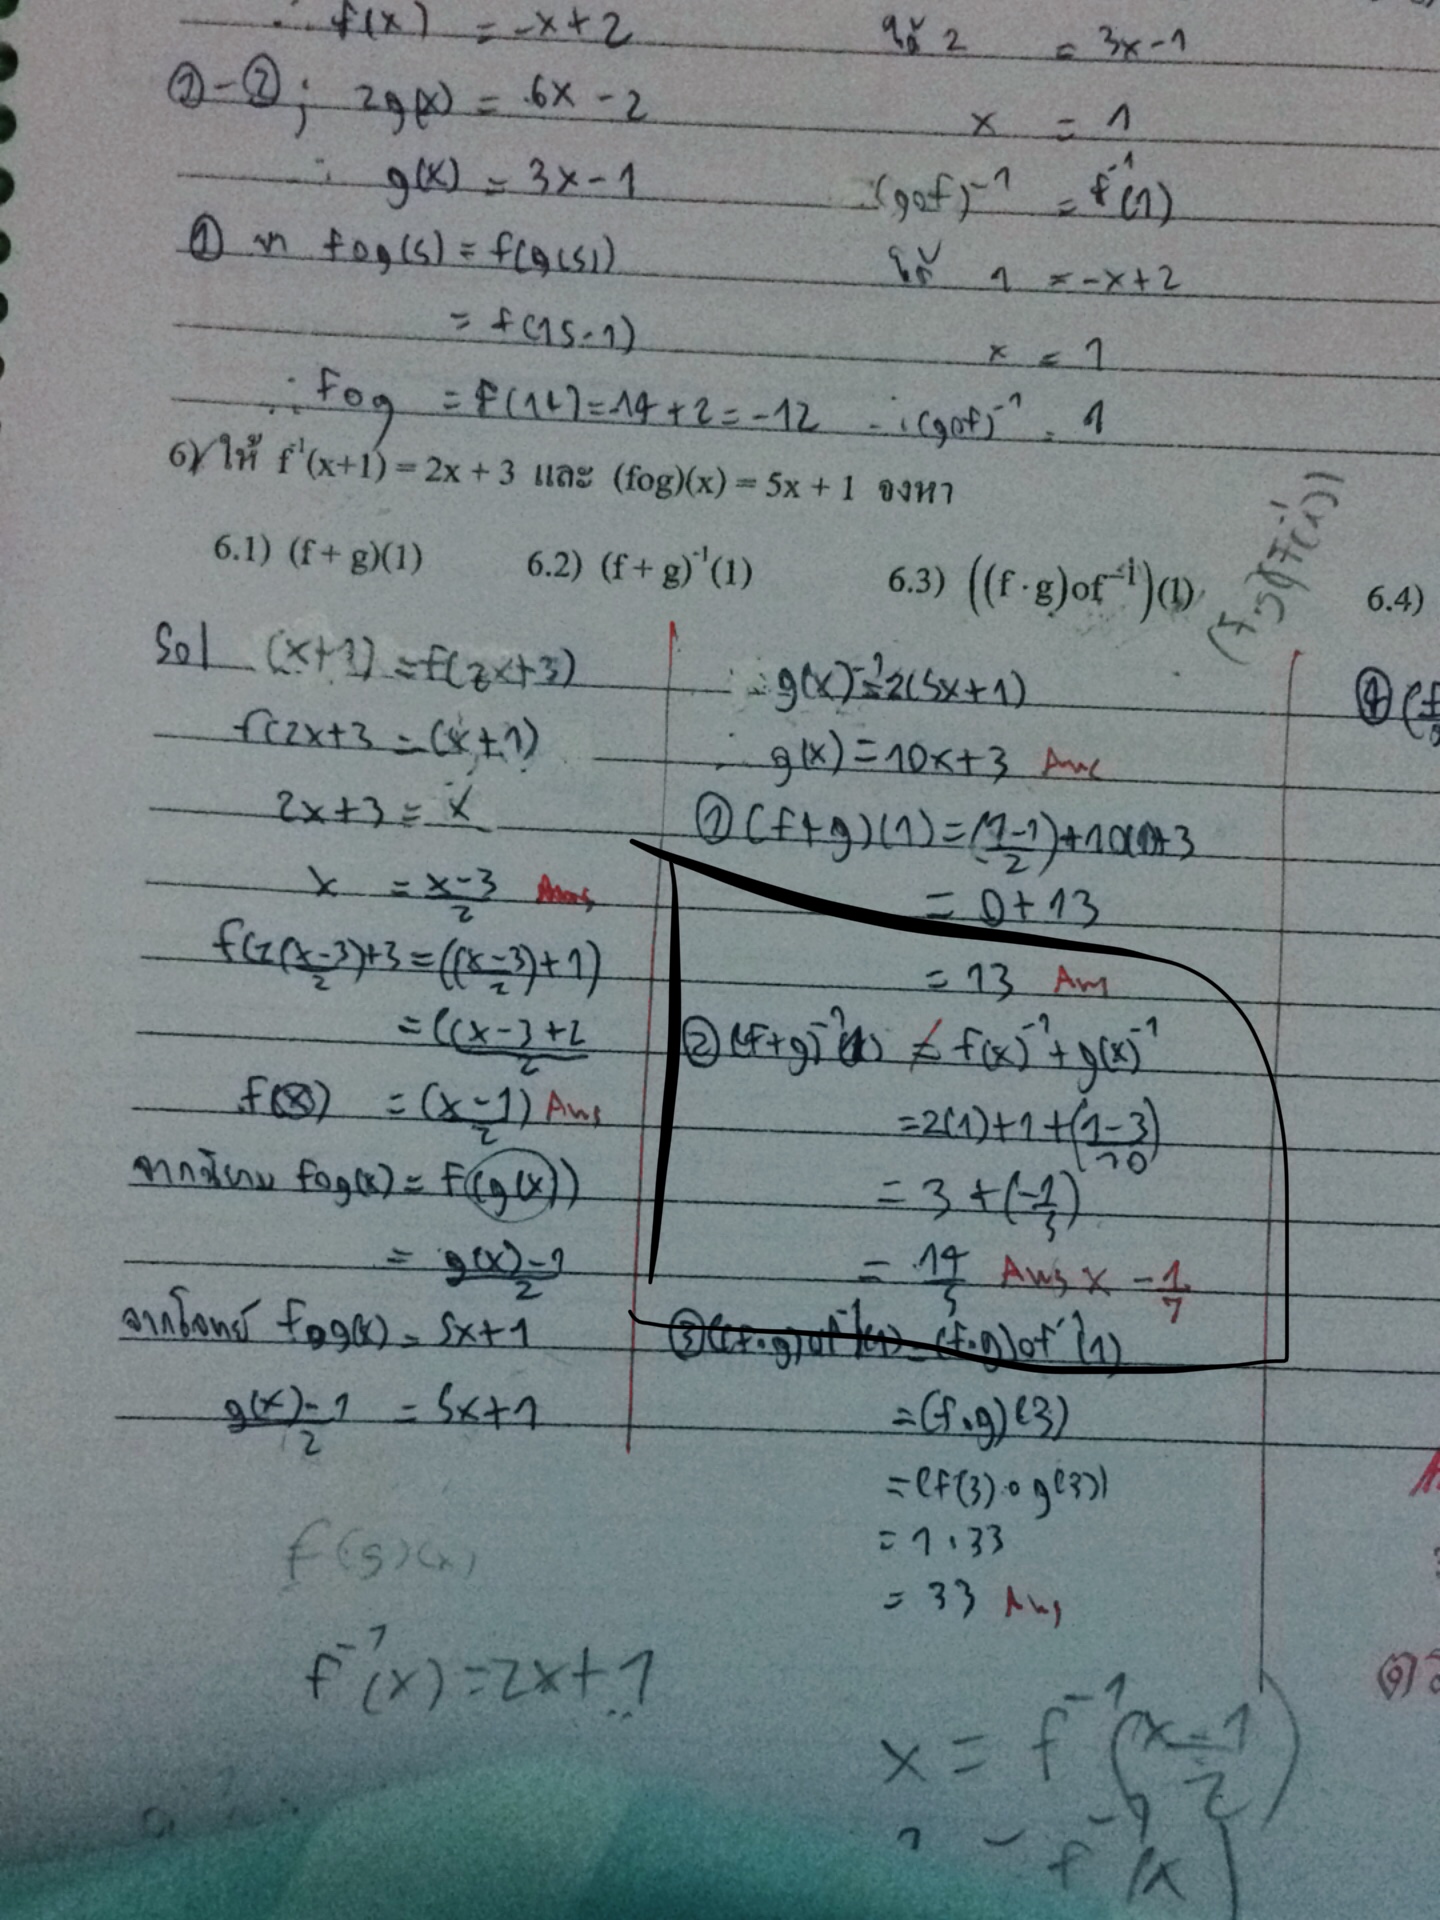 ∴ f(x) = -x+2
②-②; 2g(x) = 6x - 2
∴ g(x) = 3x - 1
① หา fog(5) = f(g(5))
= f(15-1)
∴ fog = f(14) = -14+2 = -12
ให้ 2 = 3x-1
x = 1
(gof)⁻¹ = f⁻¹(1)
ให้ 1 = -x+2
x = 1
∴ (gof)⁻¹ = 1
6) ให้ f⁻¹(x+1) = 2x + 3 และ (fog)(x) = 5x + 1 จงหา
6.1) (f + g)(1) 6.2) (f + g)⁻¹(1) 6.3) ((f · g)of⁻¹)(1) 6.4)
(f·g)(f⁻¹(1))
Sol (x+1) = f(2x+3)
f(2x+3 = (x+1)
2x+3 = x
x = x-3/2 Ans
f(2(x-3/2)+3 = ((x-3/2)+1)
= ((x-3+2/2
f(x) = (x-1/2) Ans
จากนิยาม fog(x) = f(g(x))
= g(x)-1/2
จากโจทย์ fog(x) = 5x+1
g(x)-1/2 = 5x+1
f(g)(x)
f⁻¹(x) = 2x+1
∴ g(x)-1 = 2(5x+1)
g(x) = 10x+3 Ans
① (f+g)(1) = (1-1/2)+10(1)+3
= 0+13
= 13 Ans
② (f+g)⁻¹(1) ≠ f(x)⁻¹+g(x)⁻¹
= 2(1)+1+(1-3/10)
= 3+(-1/5)
= 14/5 Ans x = -1/7
③ ((f·g)of⁻¹)(1) = (f·g)of⁻¹(1)
= (f·g)(3)
= (f(3)·g(3))
= 1·33
= 33 Ans
x = f⁻¹(x-1/2)
④ (f/g